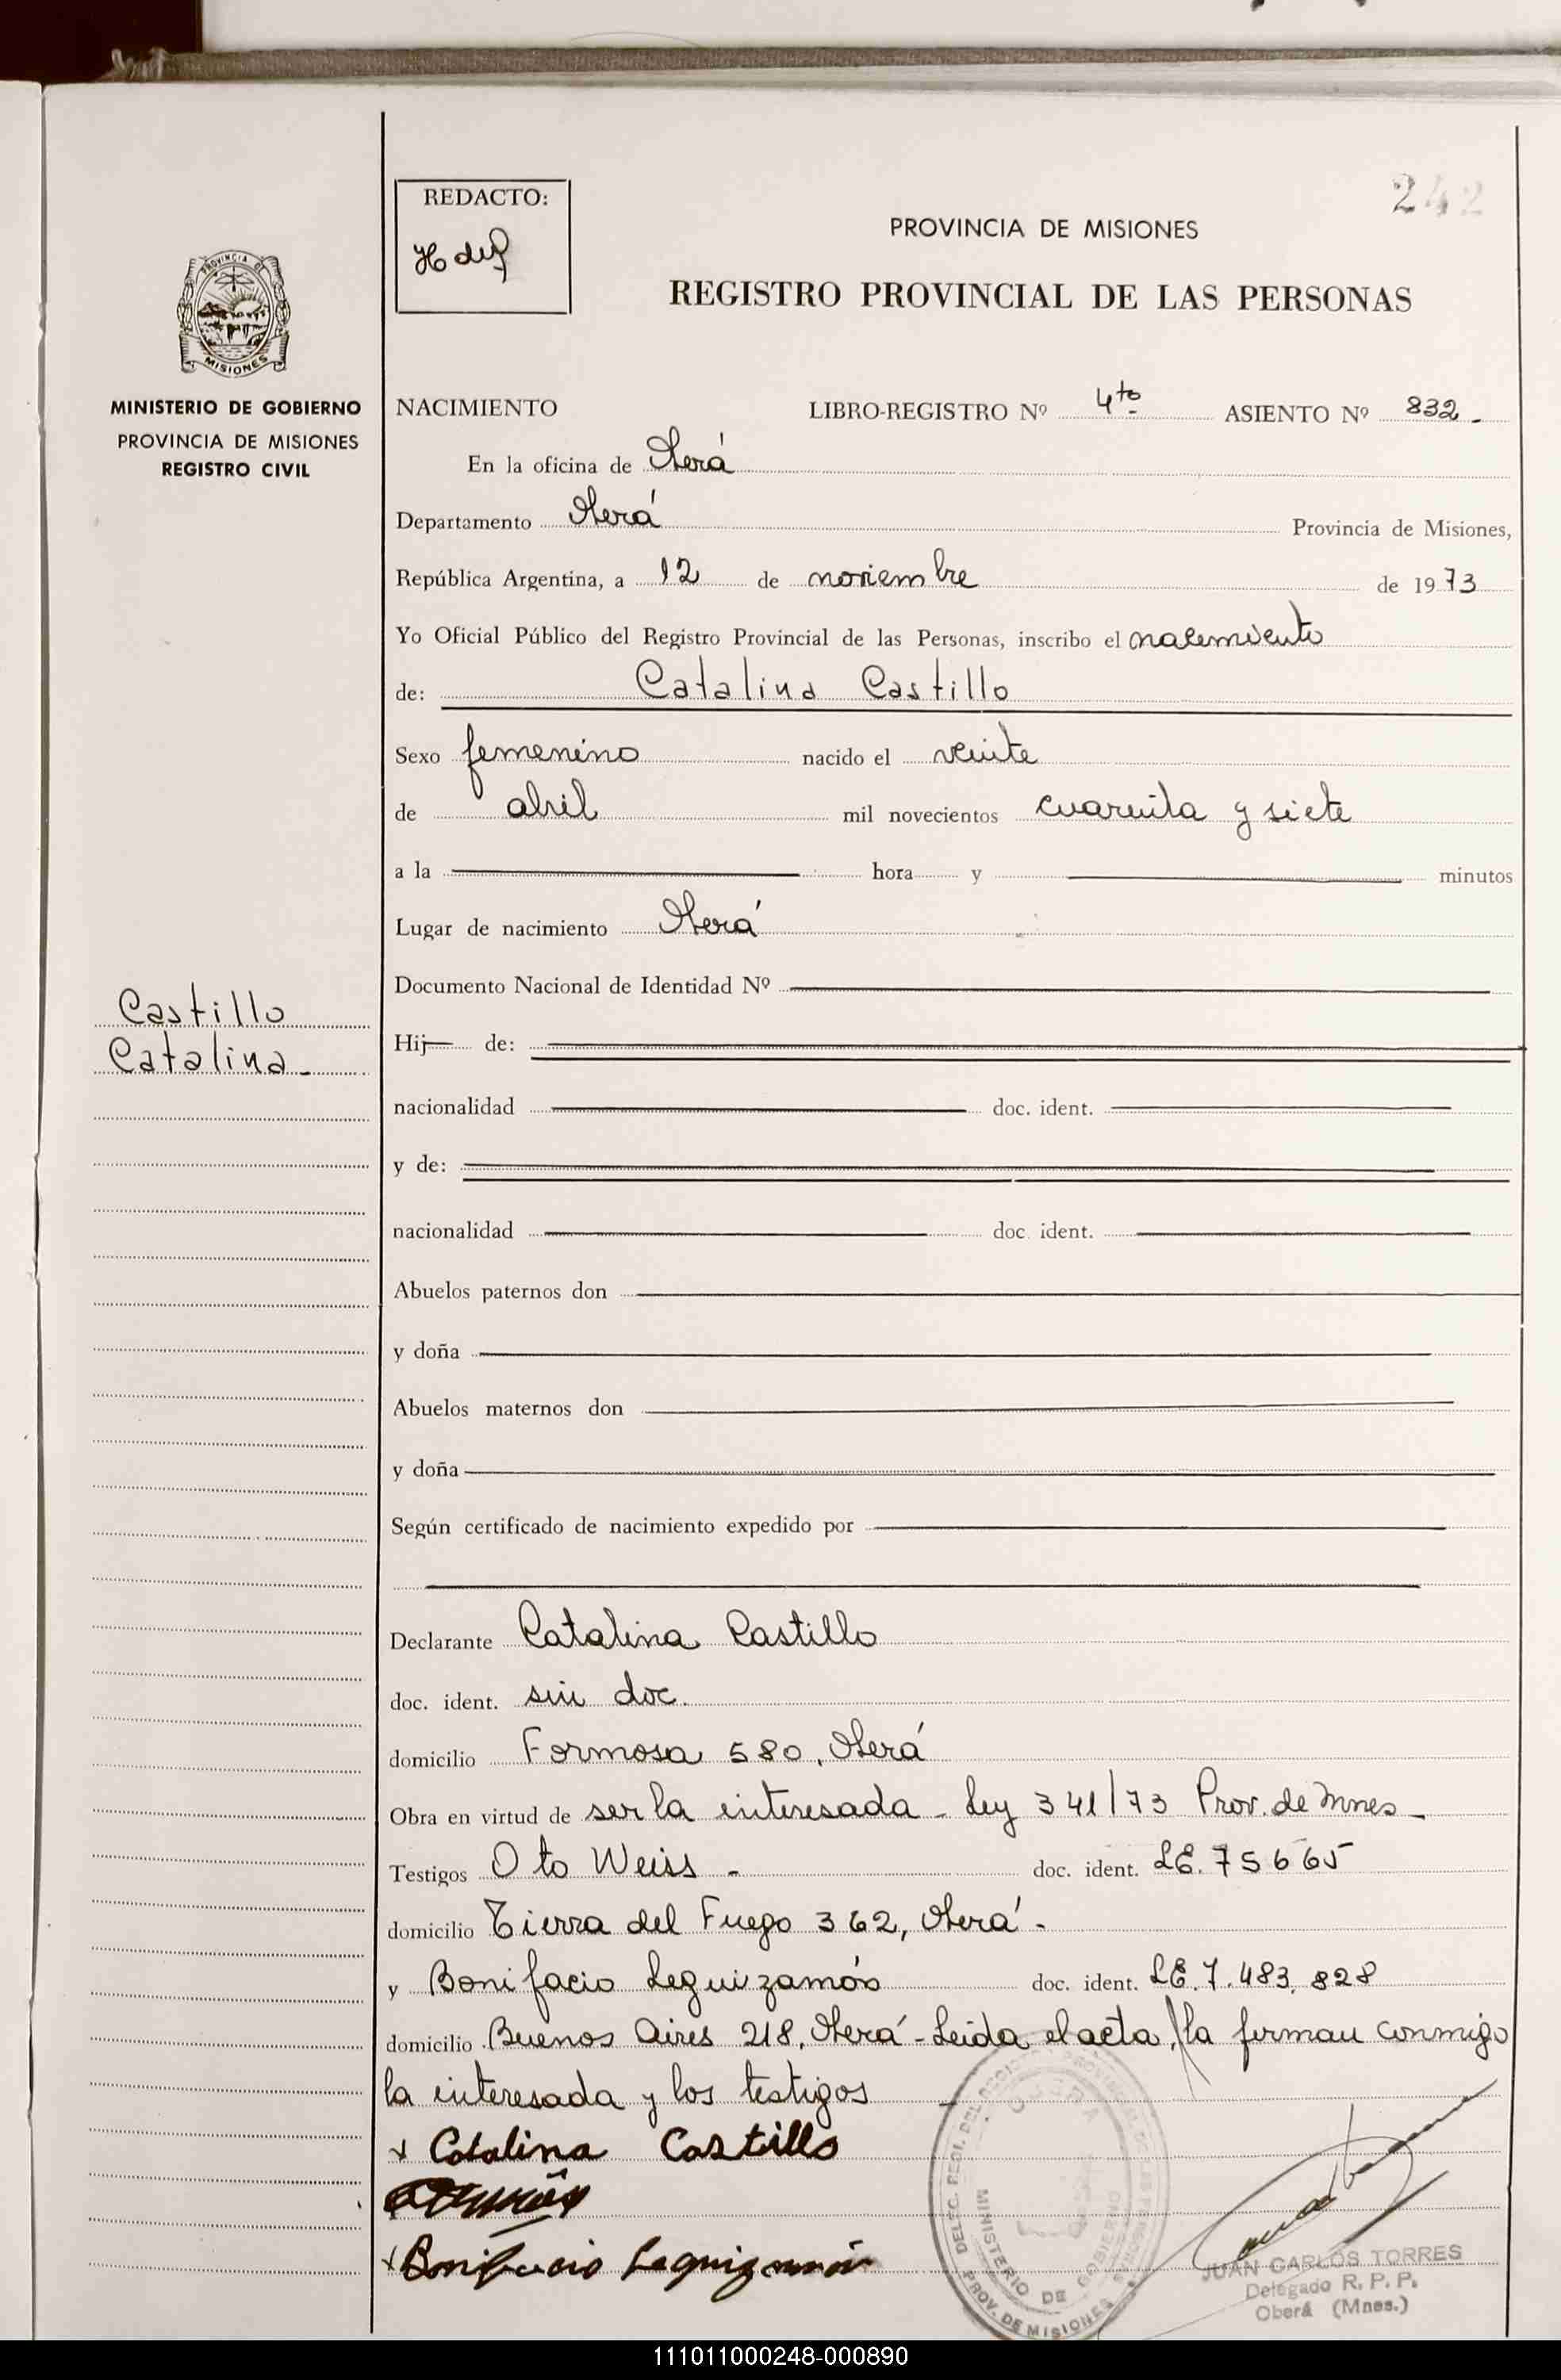 242
REDACTO:
PROVINCIA DE MISIONES
REGISTRO PROVINCIAL DE LAS PERSONAS
PROVINCIA DE
MISIONES
MINISTERIO DE GOBIERNO
PROVINCIA DE MISIONES
REGISTRO CIVIL
NACIMIENTO LIBRO-REGISTRO Nº 4to ASIENTO Nº 832.-
En la oficina de Oberá
Departamento Oberá Provincia de Misiones,
República Argentina, a 12 de noviembre de 1973
Yo Oficial Público del Registro Provincial de las Personas, inscribo el nacimiento
de: Catalina Castillo
Sexo femenino nacido el veinte
de abril mil novecientos cuarenta y siete
a la hora y minutos
Lugar de nacimiento Oberá
Documento Nacional de Identidad Nº
Castillo
Catalina.-
Hij de:
nacionalidad doc. ident.
y de:
nacionalidad doc. ident.
Abuelos paternos don
y doña
Abuelos maternos don
y doña
Según certificado de nacimiento expedido por
Declarante Catalina Castillo
doc. ident. sin doc.
domicilio Formosa 580, Oberá
Obra en virtud de ser la interesada - Ley 341/73 Prov. de Mnes -
Testigos Oto Weiss - doc. ident. LE. 75665
domicilio Tierra del Fuego 362, Oberá -
y Bonifacio Leguizamón doc. ident. LE. 7.483.828
domicilio Buenos Aires 218, Oberá - Leida el acta, la firman conmigo
la interesada y los testigos
Catalina Castillo
Bonifacio Leguizamón
MINISTERIO DE GOBIERNO
PROV. DE MISIONES
JUAN CARLOS TORRES
Delegado R. P. P.
Oberá (Mnes.)
111011000248-000890